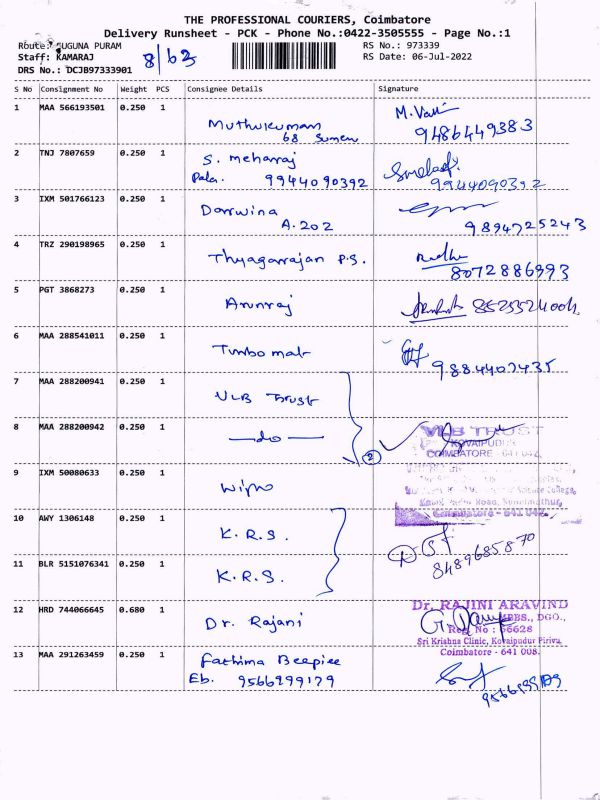 THE PROFESSIONAL COURIERS, Coimbatore
Delivery Runsheet - PCK - Phone No.:0422-3505555 - Page No.:1
Route: SUGUNA PURAM
RS No.: 973339
Staff: KAMARAJ
RS Date: 06-Jul-2022
DRS No.: DCJB97333901
S No Consignment No Weight PCS Consignee Details Signature
1 MAA 566193501 0.250 1
M. Valli
Muthukumar
68 Sumen
9486449383
2 TNJ 7807659 0.250 1
S. meharaj
9944090392
9944090392
3 IXM 501766123 0.250 1
Darwina
A. 202
9894725243
4 TRZ 290198965 0.250 1
Thyagarrajan P.S.
Radha
8072886993
5 PGT 3868273 0.250 1
Arunraj
6 MAA 288541011 0.250 1
Turbo mat
9884407435
7 MAA 288200941 0.250 1
VLB Trust
8 MAA 288200942 0.250 1
—do—
2
VLB TRUST
KOVAIPUDUR
COIMBATORE - 641 042.
9 IXM 50080633 0.250 1
Wipro
Coimbatore - 641 042.
10 AWY 1306148 0.250 1
K.R.S.
8489685870
11 BLR 5151076341 0.250 1
K.R.S.
12 HRD 744066645 0.680 1
Dr. Rajani
Dr. RAJINI ARAVIND
MBBS., DGO.,
Reg No : 66628
Sri Krishna Clinic, Kovaipudur Pirivu,
Coimbatore - 641 008.
13 MAA 291263459 0.250 1
Fathima Beepiee
Eb. 9566999179